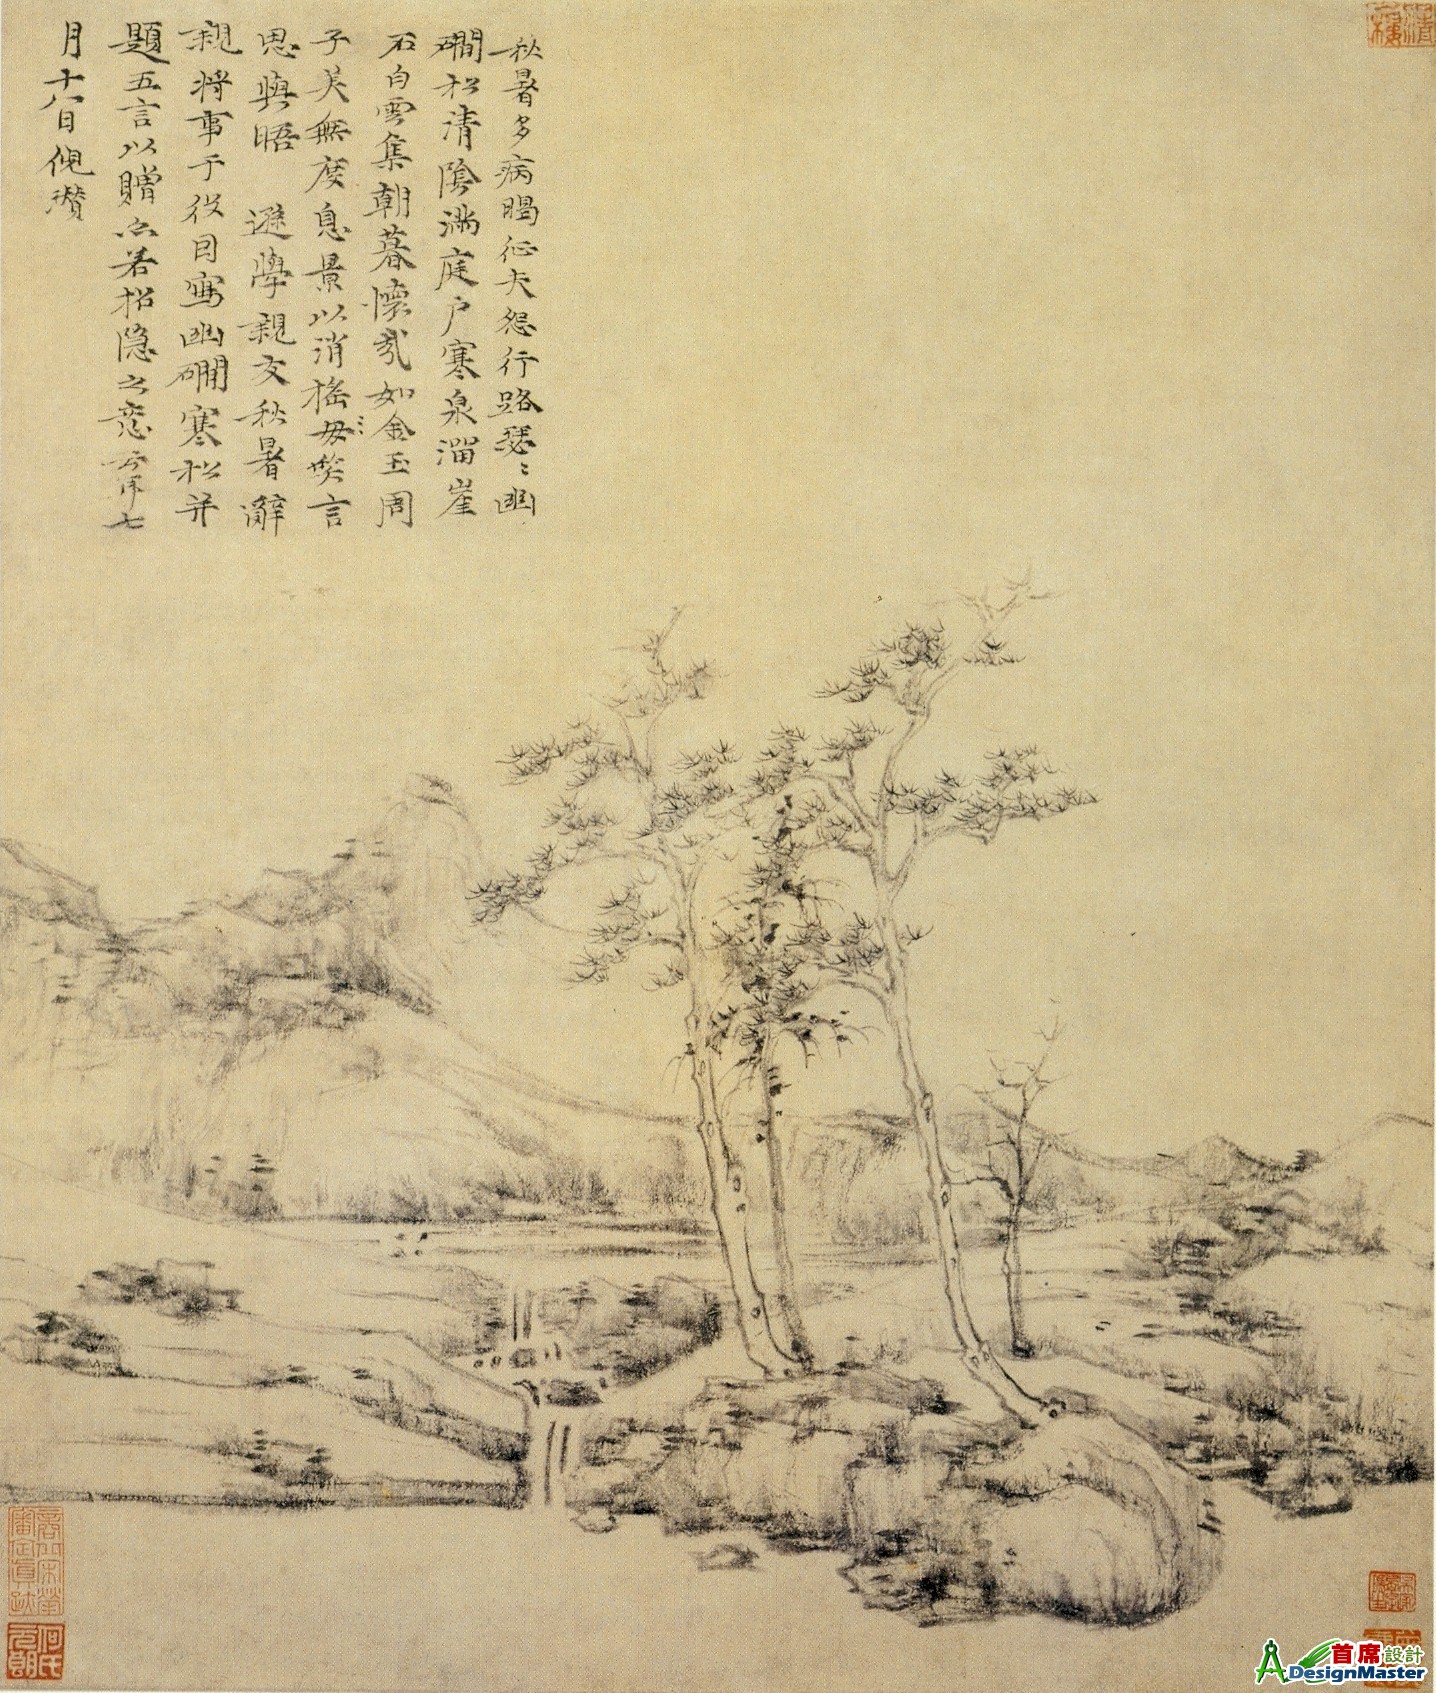 秋暑多病暍征夫怨行路瑟〻幽
磵松清陰滿庭戶寒泉溜崖
石白雲集朝暮懷哉如金玉周
子美無度息景以消搖毋笑言
思與晤 遜學親友秋暑辭
親將事于役因寫幽磵寒松并
題五言以贈亦若招隱之意云耳七
月十八日倪瓚
首席設計
DesignMaster